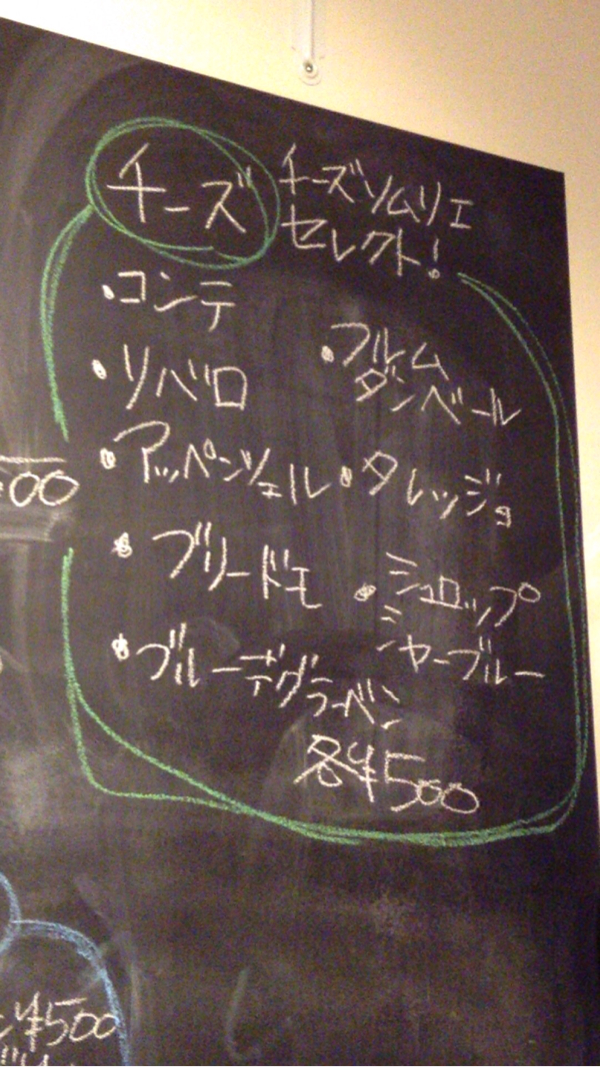 チーズ
チーズソムリエ
セレクト！
・コンテ
・リバロ
・アッペンツェル
・ブリードモ
・ブルーデグラーベン
・フルム
ダンベール
・タレッジョ
・シュロップ
シャーブルー
各¥500
00
¥500